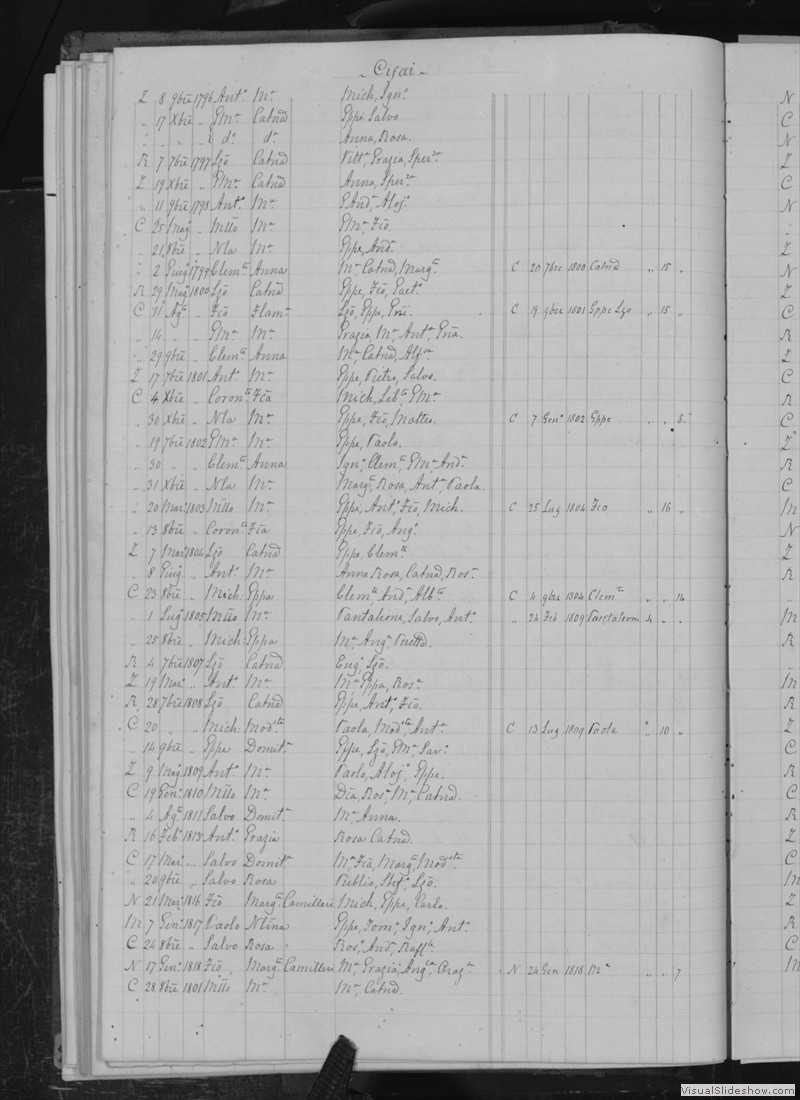 Cefai
Z 8 9bre 1796 Ant° Ma Mich, Ign°
" 17 Xbre " GMa Catnd Gppe Salvo
" " " " i d° d° Anna, Rosa.
R 7 7bre 1797 Lzo Catnd Vitta Grazia, Sperza
Z 19 Xbre " GMa Catnd Anna, Sperza
" 11 9bre 1798 Ant° Ma GAnda Aloj°
C 25 Mag° " Mtto Ma GMa Fco.
" 21 8bre " Nla Ma Gppe, Anda
" 2 Giug° 1799 Clemte Anna Ma Catnd, Marga C 20 7bre 1800 Catnd " 15 "
R 29 Mag° 1800 Lzo Catnd Gppe, Fco, Gaet°
C 11 Ag° " Fco Flama Lzo, Gppe, C 19 9bre 1801 Gppe Lzo " 15 "
" 14 " " GMa Ma Grazia, Ma Anta
" 29 9bre " Clemte Anna Ma Catnd,
Z 17 7bre 1801 Ant° Ma Gppe, Pietro, Salvo.
C 4 Xbre " Corona Fca Mich, Liba GMa
" 30 Xbre " Nla Ma Gppe, Fco, Matteo. C 7 Gen° 1802 Gppe " " 8"
" 19 7bre 1802 GMa Ma Gppe, Paolo.
" 30 " " Clemte Anna Ign° Clemte GMa Anda
" 31 Xbre " Nla Ma Marga Rosa, Anta Paola.
" 20 Mar° 1803 Mtto Ma Gppe, Ant° Fco, Mich. C 25 Lug 1804 Fco " 16 "
" 13 8bre " Corona Fca Gppe, Fco, Ang°
Z 7 Mar° 1804 Lzo Catnd Gppe, Clemte
" 8 Giug° " Ant° Ma Anna Rosa, Catnd, Rosa
C 23 8bre " Mich: Gppa Clemte Anda Albta C 4 9bre 1804 Clemte " " 14
" 1 Lug° 1805 Mtto Ma Pantaleone, Salvo, Ant° " 24 Feb 1809 Pantaleone 4 " "
" 25 8bre " Mich: Gppa Ma Anga
R 4 7bre 1807 Lzo Catnd Eug° Lzo.
Z 19 Mar° " Ant° Ma Ma Gppa, Rosa
R 28 7bre 1808 Lzo Catnd Gppe, Ant° Fco.
C 20 " " Mich Modsta Paola, Modsta Anta C 13 Lug 1809 Paola " 10 "
" 14 9bre " Gppe Domita Gppe, Lzo, GMa Sav°
Z 9 Mag° 1809 Ant° Ma Paolo, Aloj° Gppe.
C 19 Gen° 1810 Mtto Ma Dca, Rosa Ma Catnd.
" 4 Ag° 1811 Salvo Domita Ma Anna.
R 16 Feb° 1813 Ant° Grazia Rosa Catnd.
C 17 Mar° " Salvo Domita Ma Fca, Marga Modsta
" 20 9bre " Salvo Rosa Publio, Stef° Lzo.
N 21 Mar° 1816 Fco Marga Camilleri Mich, Gppe, Carlo.
M 7 Gen° 1817 Paolo Ntina Gppe, Tom° Ign° Ant°
C 24 8bre " Salvo Rosa Ros° Anda Raffle
N 17 Gen° 1818 Fco Marga Camilleri Ma Grazia, Angca N 24 Gen 1818 Ma " " 7
C 28 8bre 1801 Mtto Ma Ma Catnd.
VisualSlideshow.com